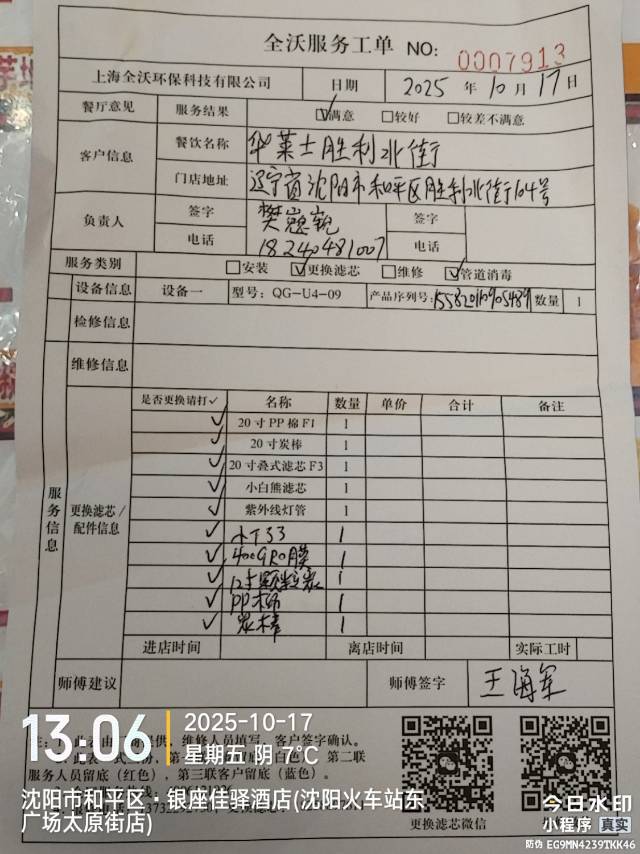 全沃服务工单 NO: 0007913
上海全沃环保科技有限公司 日期 2025 年 10 月 17 日
餐厅意见 服务结果 ☑满意 □较好 □较差不满意
客户信息 餐饮名称 华莱士胜利北街
门店地址 辽宁省沈阳市和平区胜利北街104号
负责人 签字 樊 签字
电话 18240481007 电话
服务类别 □安装 ☑更换滤芯 □维修 ☑管道消毒
设备信息 设备一 型号: QG-U4-09 产品序列号: 数量 1
检修信息
维修信息
服务信息
更换滤芯/配件信息
是否更换请打✓ 名称 数量 单价 合计 备注
✓ 20寸PP棉F1 1
✓ 20寸炭棒 1
✓ 20寸叠式滤芯F3 1
✓ 小白熊滤芯 1
✓ 紫外线灯管 1
✓ 小T33 1
✓ 400GRO膜 1
✓ 12寸颗粒炭 1
✓ PP棉 1
✓ 炭棒 1
进店时间 离店时间 实际工时
师傅建议 师傅签字 王海军
维修人员填写,客户签字确认。
第二联
服务人员留底(红色),第三联客户留底(蓝色)。
更换滤芯微信
13:06 2025-10-17
星期五 阴 7℃
沈阳市和平区·银座佳驿酒店(沈阳火车站东
广场太原街店)
今日水印
小程序 真实
防伪 EG9MN4239TKK46